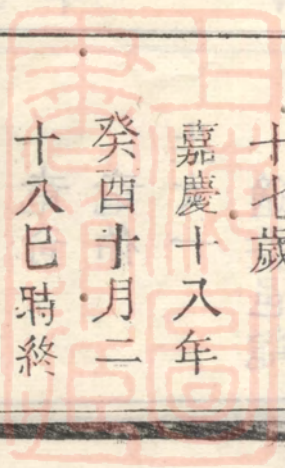 十七歲
嘉慶十八年
癸酉十月二
十八巳時終